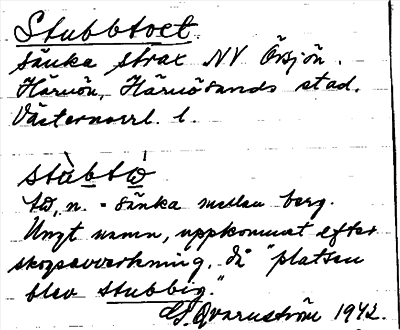 Stubbtoet
sänka strax NV Örsjön.
Härnön, Härnösands stad.
Västernorrl. l.
stùbtú̵
n. = sänka mellan berg.
Ungt namn, uppkommet efter
skogsavverkning, då "platsen
blev stubbig."
Qvarnström 1942.